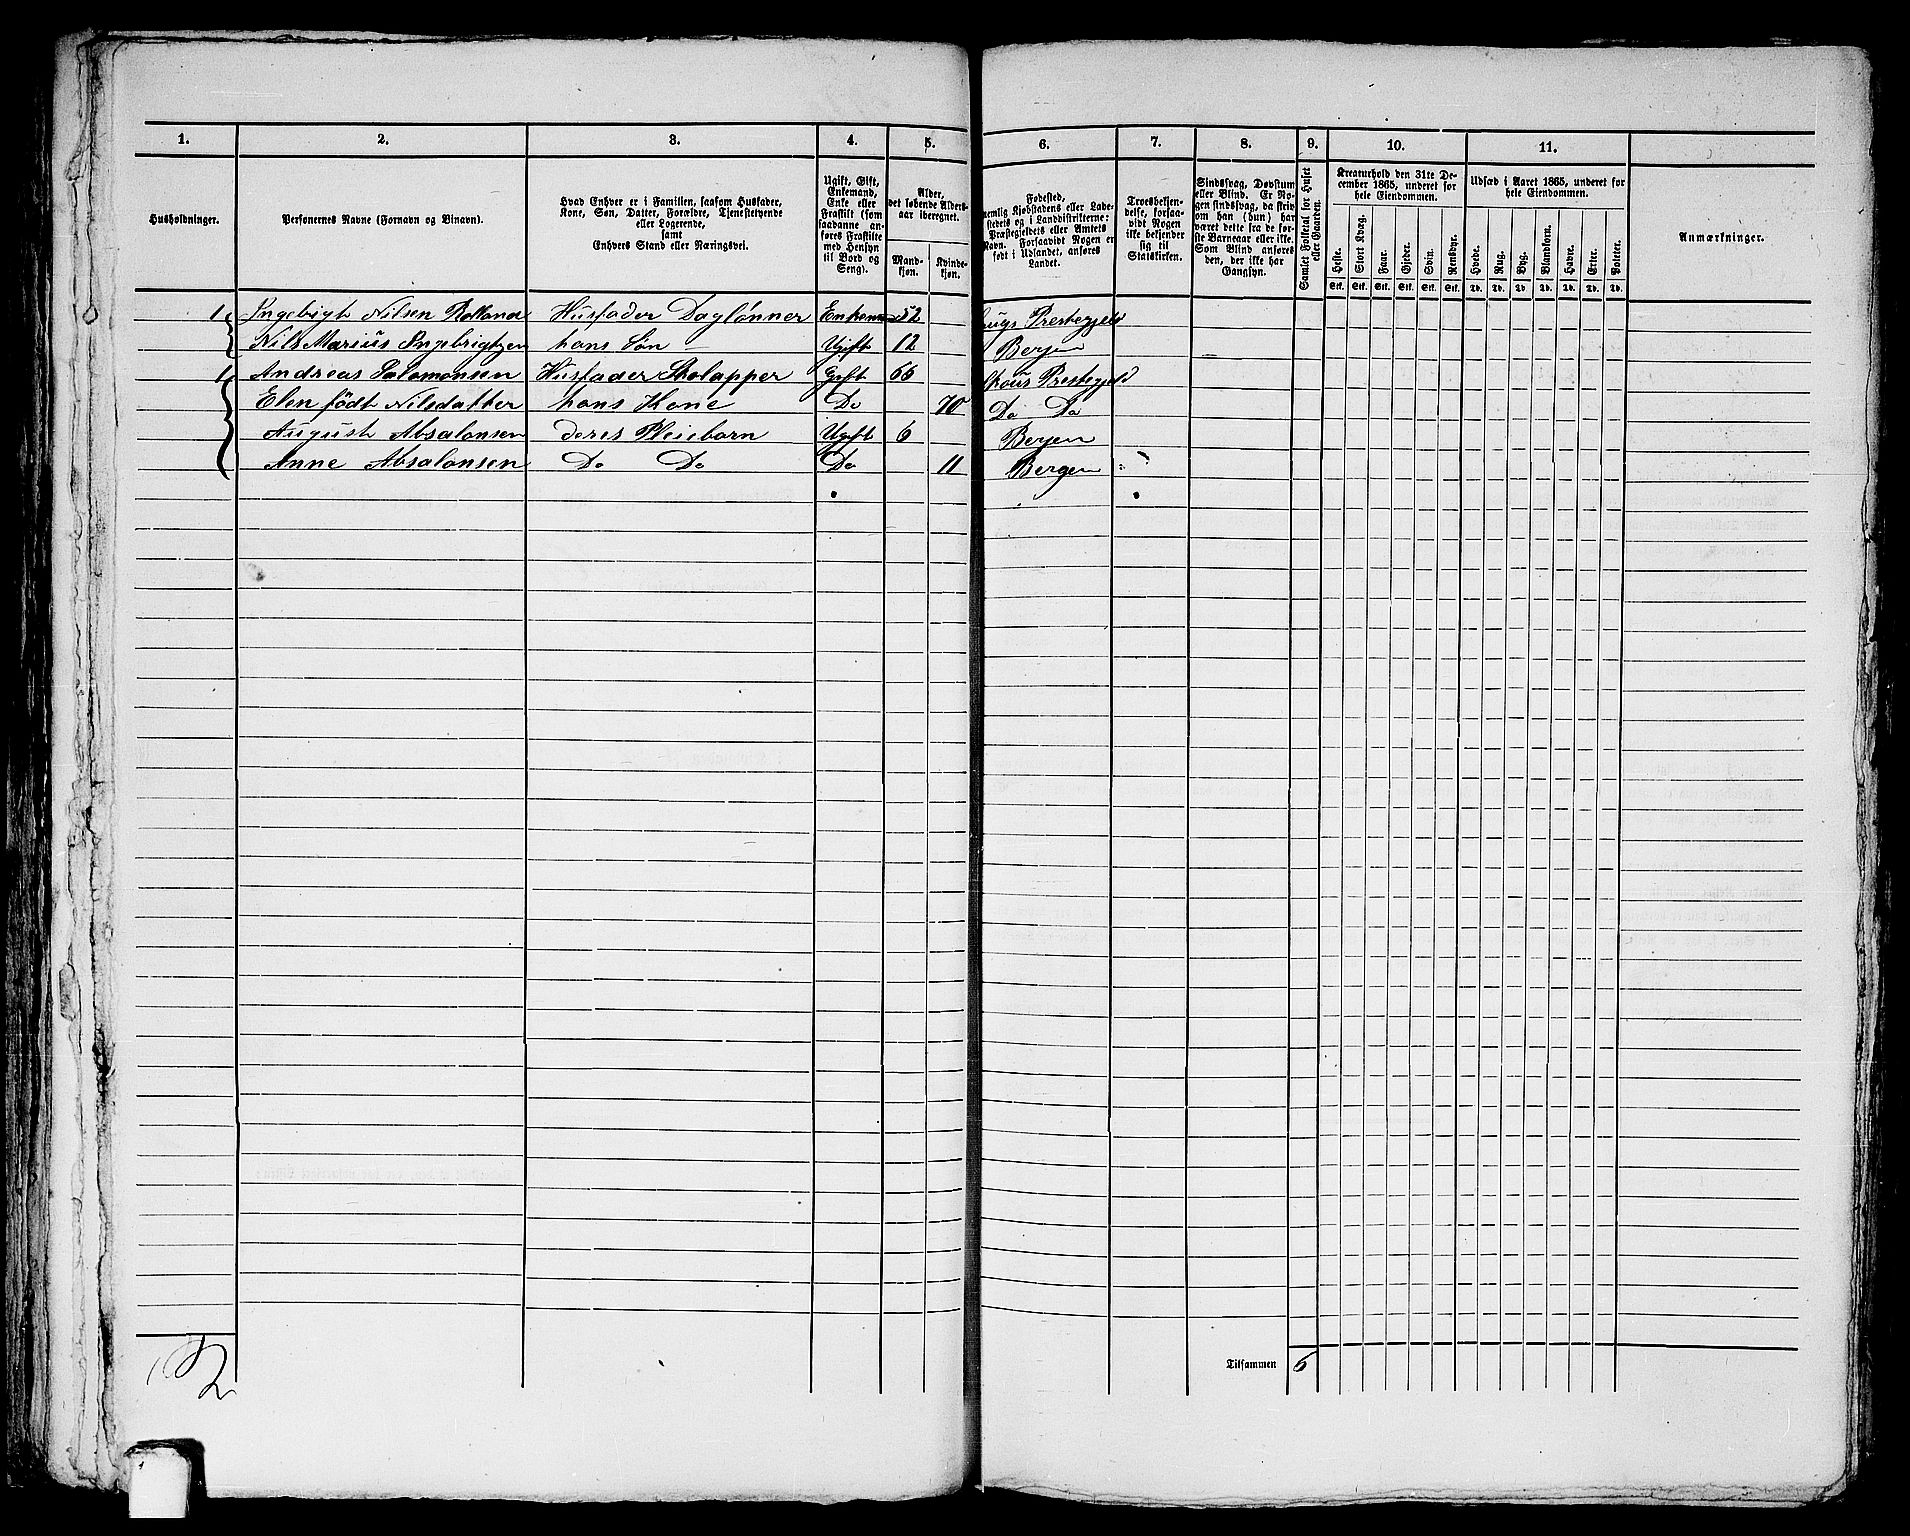 1. 2. 3. 4. 5. 6. 7. 8. 9. 10. 11.
Husholdninger.
Personernes Navne (Fornavn og Binavn).
Hvad Enhver er i Familien, saasom Husfader,
Kone, Søn, Datter, Forældre, Tjenestetyende
eller Logerende,
samt
Enhvers Stand eller Næringsvei.
Ugift, Gift,
Enkemand,
Enke eller
Fraskilt (som
saadanne an-
føres Fraskilte
med Hensyn
til Bord og
Seng).
Alder,
det løbende Alders-
aar iberegnet.
Mand-
kjøn.
Kvinde-
kjøn.
Fødested,
nemlig Kjøbstadens eller Lade-
stedets og i Landdistrikterne:
Præstegjeldets eller Amtets
Navn. Forsaavidt Nogen er
født i Udlandet, anføres
Landet.
Troesbekjen-
delse, forsaa-
vidt Nogen
ikke bekjender
sig til
Statskirken.
Sindssvag, Døvstum
eller Blind. Er No-
gen sindssvag, da skrives
om han (hun) har
været dette fra de før-
ste Barneaar eller ikke.
Som Blind anføres
den, der ikke har
Gangsyn.
Samlet Folketal for Huset
eller Gaarden.
Kreaturhold den 31te De-
cember 1865, underet for
hele Eiendommen.
Heste. Stort Kvæg. Faar. Gjeder. Svin. Rensdyr.
Stk. Stk. Stk. Stk. Stk. Stk.
Udsæd i Aaret 1865, underet for
hele Eiendommen.
Hvede. Rug. Byg. Blandkorn. Havre. Erter. Poteter.
Td. Td. Td. Td. Td. Td. Td.
Anmærkninger.
1 Ingebrigt Nilsen Rolland Husfader Daglønner Enkem 52 Prestegjeld
Nils Marius Ingebrigtsen hans Søn Ugift 12 Bergen
1 Andreas Salomonsen Husfader Skolapper Gift 66 Prestegjeld
Elen født Nilsdatter hans Kone Do 70 Do Do
August Absalonsen deres Pleiebarn Ugift 6 Bergen
Anne Absalonsen Do Do Do 11 Bergen
Tilsammen 6